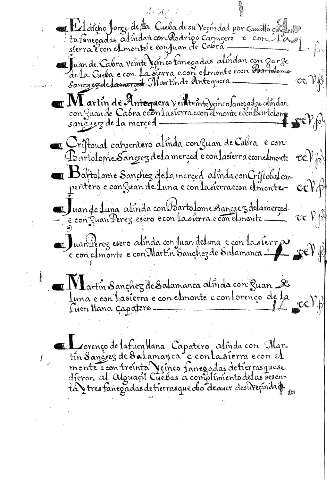 El dicho Jorge de la Cueba de su Vezindad por
ta fanegadas alindan con Rodrigo Carnycero e con
sierra e con el monte e con Juan de Cabra
Juan de Cabra veinte y cinco fanegadas alindan con Jorge
de la Cueba e con la sierra e con el monte e con Bartolome
Sanchez de la merced Martin de Antequera
Martin de Antequera veinte y cinco fanegadas alindan
con Juan de Cabra e con la sierra e con el monte e con Bartolome
sanchez de la merced
Cristoual carpentero alinda con Juan de Cabra e con
Bartolome Sanchez de la merced e con la sierra e con el monte
Bartolome Sanchez de la merced alinda con Cristobal car
pentero e con Juan de Luna e con la sierra e con el monte
Juan de Luna alinda con Bartolome Sanchez de la merced
e con Juan Perez esero e con la sierra e con el monte
Juan Perez esero alinda con Juan de luna e con la sierra
e con el monte e con Martin Sanchez de Salamanca
Martin Sanchez de Salamanca alinda con Juan
Luna e con la sierra e con el monte e con Lorenço de la
fuen llana Capatero
Lorenço de la fuen llana Capatero alinda con Mar
tin Sanchez de Salamanca e con la sierra e con el
monte e con treinta y cinco fanegadas de tierras que se
dieron al Alguazil Cuebas a complimiento de las sesen
ta y tres fanegadas de tierras que obo de auer de su Vezindad